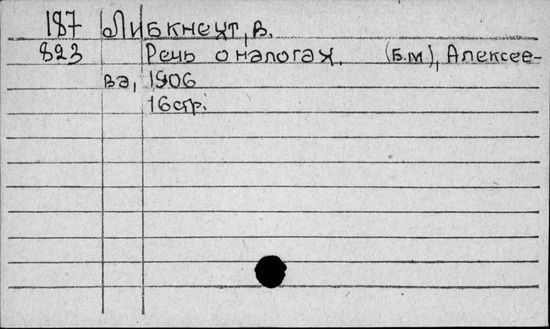 187 Либкнехт, В.
823 Речь о налогах. (Б.м), Алексее-
ва, 1906
16стр.